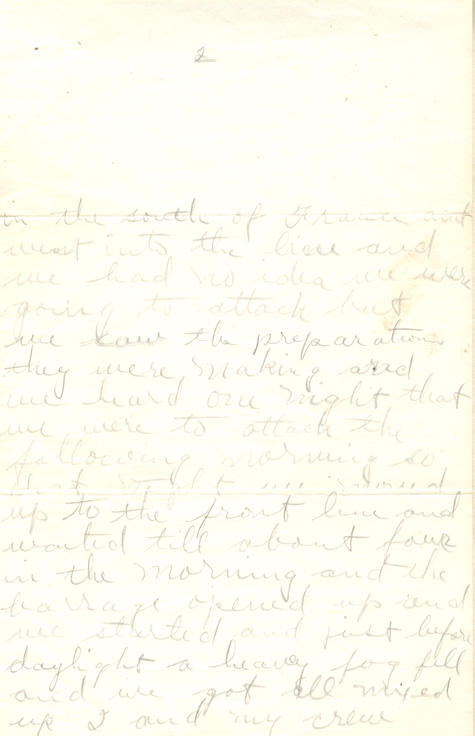 2
in the south of France and
went into the line and
we had no idea we were
going to attack but
we saw the preparations
they were making and
we heard one night that
we were to attack the
following morning so
that night we moved
up to the front line and
waited till about four
in the morning and the
barrage opened up and
we started and just before
daylight a heavy fog fell
and we got all mixed
up I and my crew